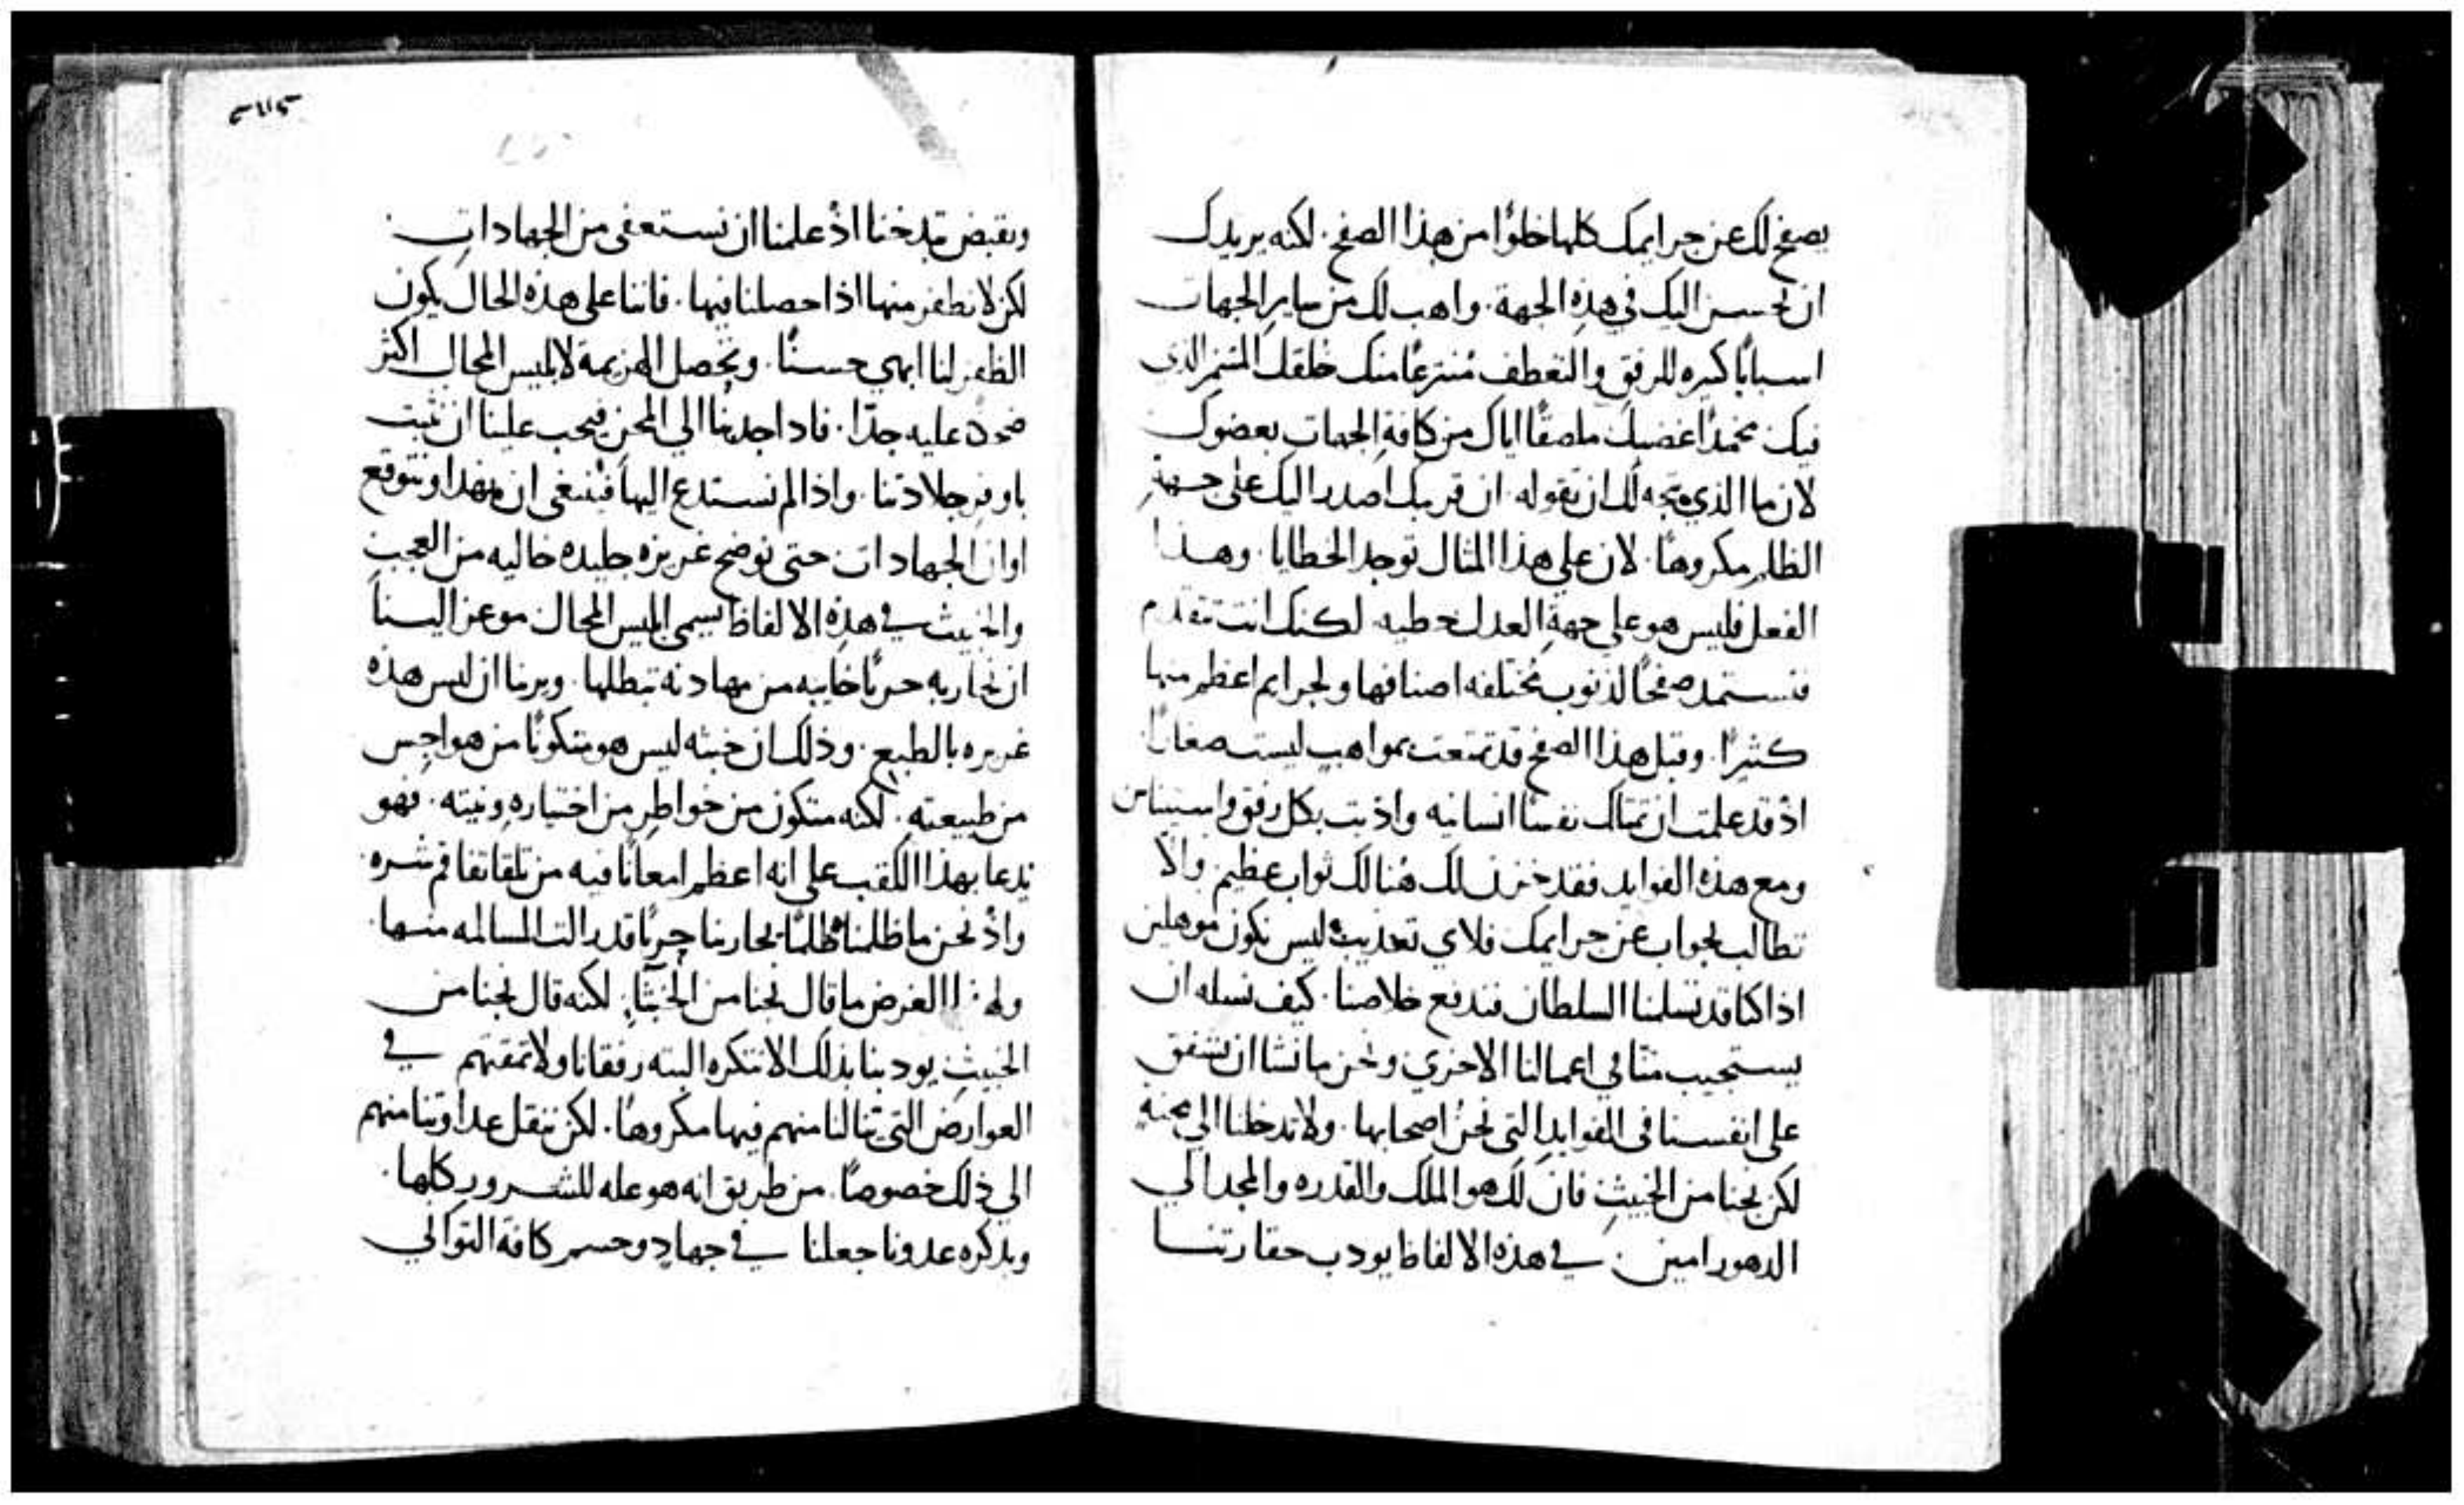 يصفح لك عن جرايمك كلها خلوًا من هذا الصفح. لكنه يريدك
ان تحسن اليك في هذه الجهة. واهب لك من ساير الجهات
اسبابًا كثيره للرفق والتعطف مُنتزعًا منك خلقك المتنمر الذي
فيك مخمدًا غضبك ملصقًا اياك من كافة الجهات بعضوك
لان ما الذي يتجه لك ان تقوله. ان قريبك اصدر اليك على جهة
الظلم مكروهًا. لان على هذا المثال توجد الخطايا. وهذا
الفعل فليس هو على جهة العدل خطيه. لكنك انت تتقدم
فتستمد صفحًا لذنوب مختلفه اصنافها ولجرايم اعظم منها
كثيرًا. وقبل هذا الصفح قد تمتعت بمواهب ليست صغارًا.
اذ قد علمت ان تمتلك نفسًا انسانيه واذبت بكل رفق واستيناس
ومع هذه الفوايد فقد خزن لك هُنالك ثواب عظيم والا
تطالب بجواب عن جرايمك فلاي تعذيب ليس نكون موهلين
اذا كنا قد تسلمنا السلطان فندفع خلاصنا. كيف نسله ان
يستجيب منّا في اعمالنا الاخري ونحن ما نشا ان نشفق
على انفسنا في الفوايد التي نحن اصحابها. ولا تدخلنا الي محنه
لكن نجنا من الخبيث فان لك هو الملك والقدره والمجد الي
الدهور امين: في هذه الالفاظ يودب حقارتنا
ويقبض بذخنا اذ علمنا ان نستعفى من الجهادات.
لكن لا نطفر منها اذا حصلنا فيها. فاننا على هذه الحال يكون
الظفر لنا ابهي حسنًا. وتحصل الهزيمة لابليس المحال اكثر
ضحكة عليه جدًا. فاذا اجذبنا الي المحن فيجب علينا ان نثبت
باوفر جلادتنا. واذا لم نستدع اليها فينبغى ان نهدا ونتوقع
اوان الجهادات حتى نوضح غريزه جليده خاليه من العجب
والخبيث في هذه الالفاظ يسمى ابليس المحال موعز الينا
ان نحاربه حربًا خايبه من مهادنه تبطلها. ويرينا ان ليس هذه
غريزه بالطبع. وذلك ان خبثه ليس هو متكونًا من هواجس
من طبيعته. لكنه متكون من خواطر من اختياره ونيته. فهو
يدعا بهذا اللقب على انه اعظم امعانًا فيه من تلقا تفاقم شره
واذ نحن ما ظلمناه ظلمًا يحاربنا حربًا قد زالت المسالمه منها.
ولهذا الغرض ما قال نجنا من الخبثا. لكنه قال نجنا من
الخبيث يودبنا بذلك الا نتكره البته رفقانا ولا نمقتهم في
العوارض التي تنالنا منهم فيها مكروهًا. لكن ننقل عداوتنا منهم
الي ذلك خصوصًا. من طريق انه هو عله للشرور كلها.
وبذكره عدونا جعلنا في جهاد وحسم كافة التواني